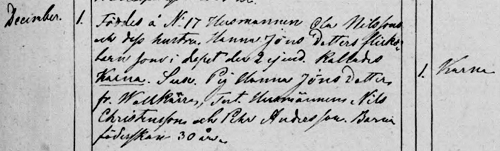 December. 1. Föddes å N. 17 Husmannen Ola Nilssons
och dess hustru Hanna Jöns Dotters flicke-
barn som i dopet den 2 ejusd. kallades
Karna. Susc. Pig. Hanna Jöns Dotter
fr. Wallkärra, Test. Husmännens Nils
Christensson och Pehr Andersson. Barna-
föderskan 30 år.
1. Karna